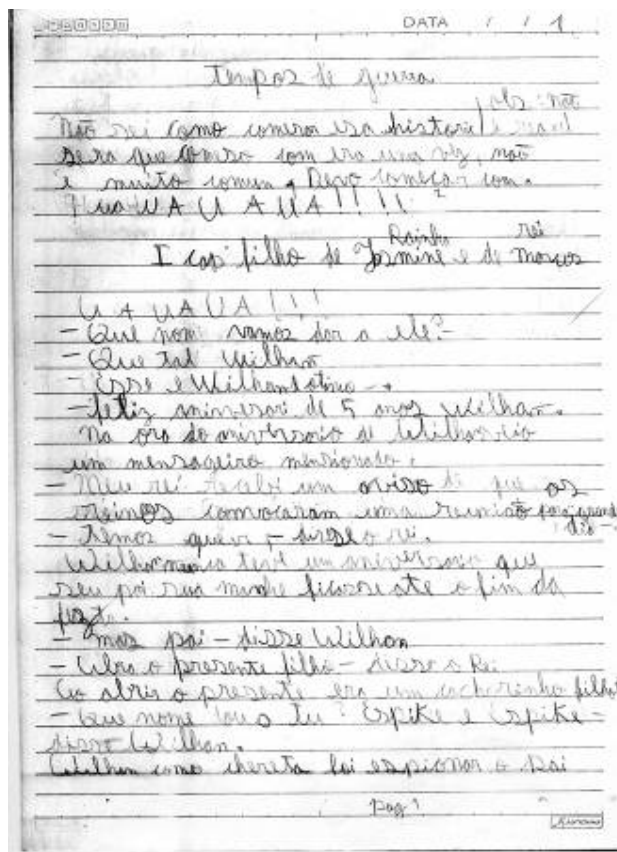 DATA / / 1
Tempos de guerra
obs: não
Não sei como comesar esa historia é real
Sera que comeso com era uma vez, não
é muito comum. Devo começar com.
UA U A UA!!!!
Rainha rei
I cap filho de Jasmine e de Marcos
U A UA UA!!!
- Que nome vamos dar a ele?-
- Que tal Wilhan
- Esse e Wilhan
- feliz aniversari de 5 anos Wilhan.
Na ora do aniversario de Wilhan veio
um mensageiro mensionado.
- Meu rei recebi um aviso de que os
reinos convocaram uma reunião para grande
- Temos que ir - disse o rei.
Wilhan nunca teve um aniversario que
seu pai sua mamhe ficasse ate o fim da
festa.
- mas pai - disse Wilhan
- Abra o presente filho - disse o Rei
Ao abrir o presente era um cachorinho filho
- Que nome dou a tu? Espike e Espike -
disse Wilhan.
Wilhan como chereta foi espionar o pai
pag 1